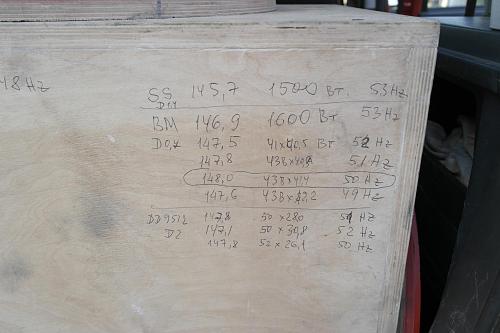 48Hz
SS 145,7 1500 Вт. 53Hz
D1,1
BM 146,9 1600 Вт 53Hz
D0,4 147,5 41x40,5 Вт 52Hz
147,8 43В x 51Hz
148,0 43В x 41,4 50 Hz
147,6 43В x 42,2 49 Hz
DD9512 147,8 50 x 280 51 Hz
D2 147,1 50 x 30,8 52 Hz
147,8 52 x 26,1 50 Hz